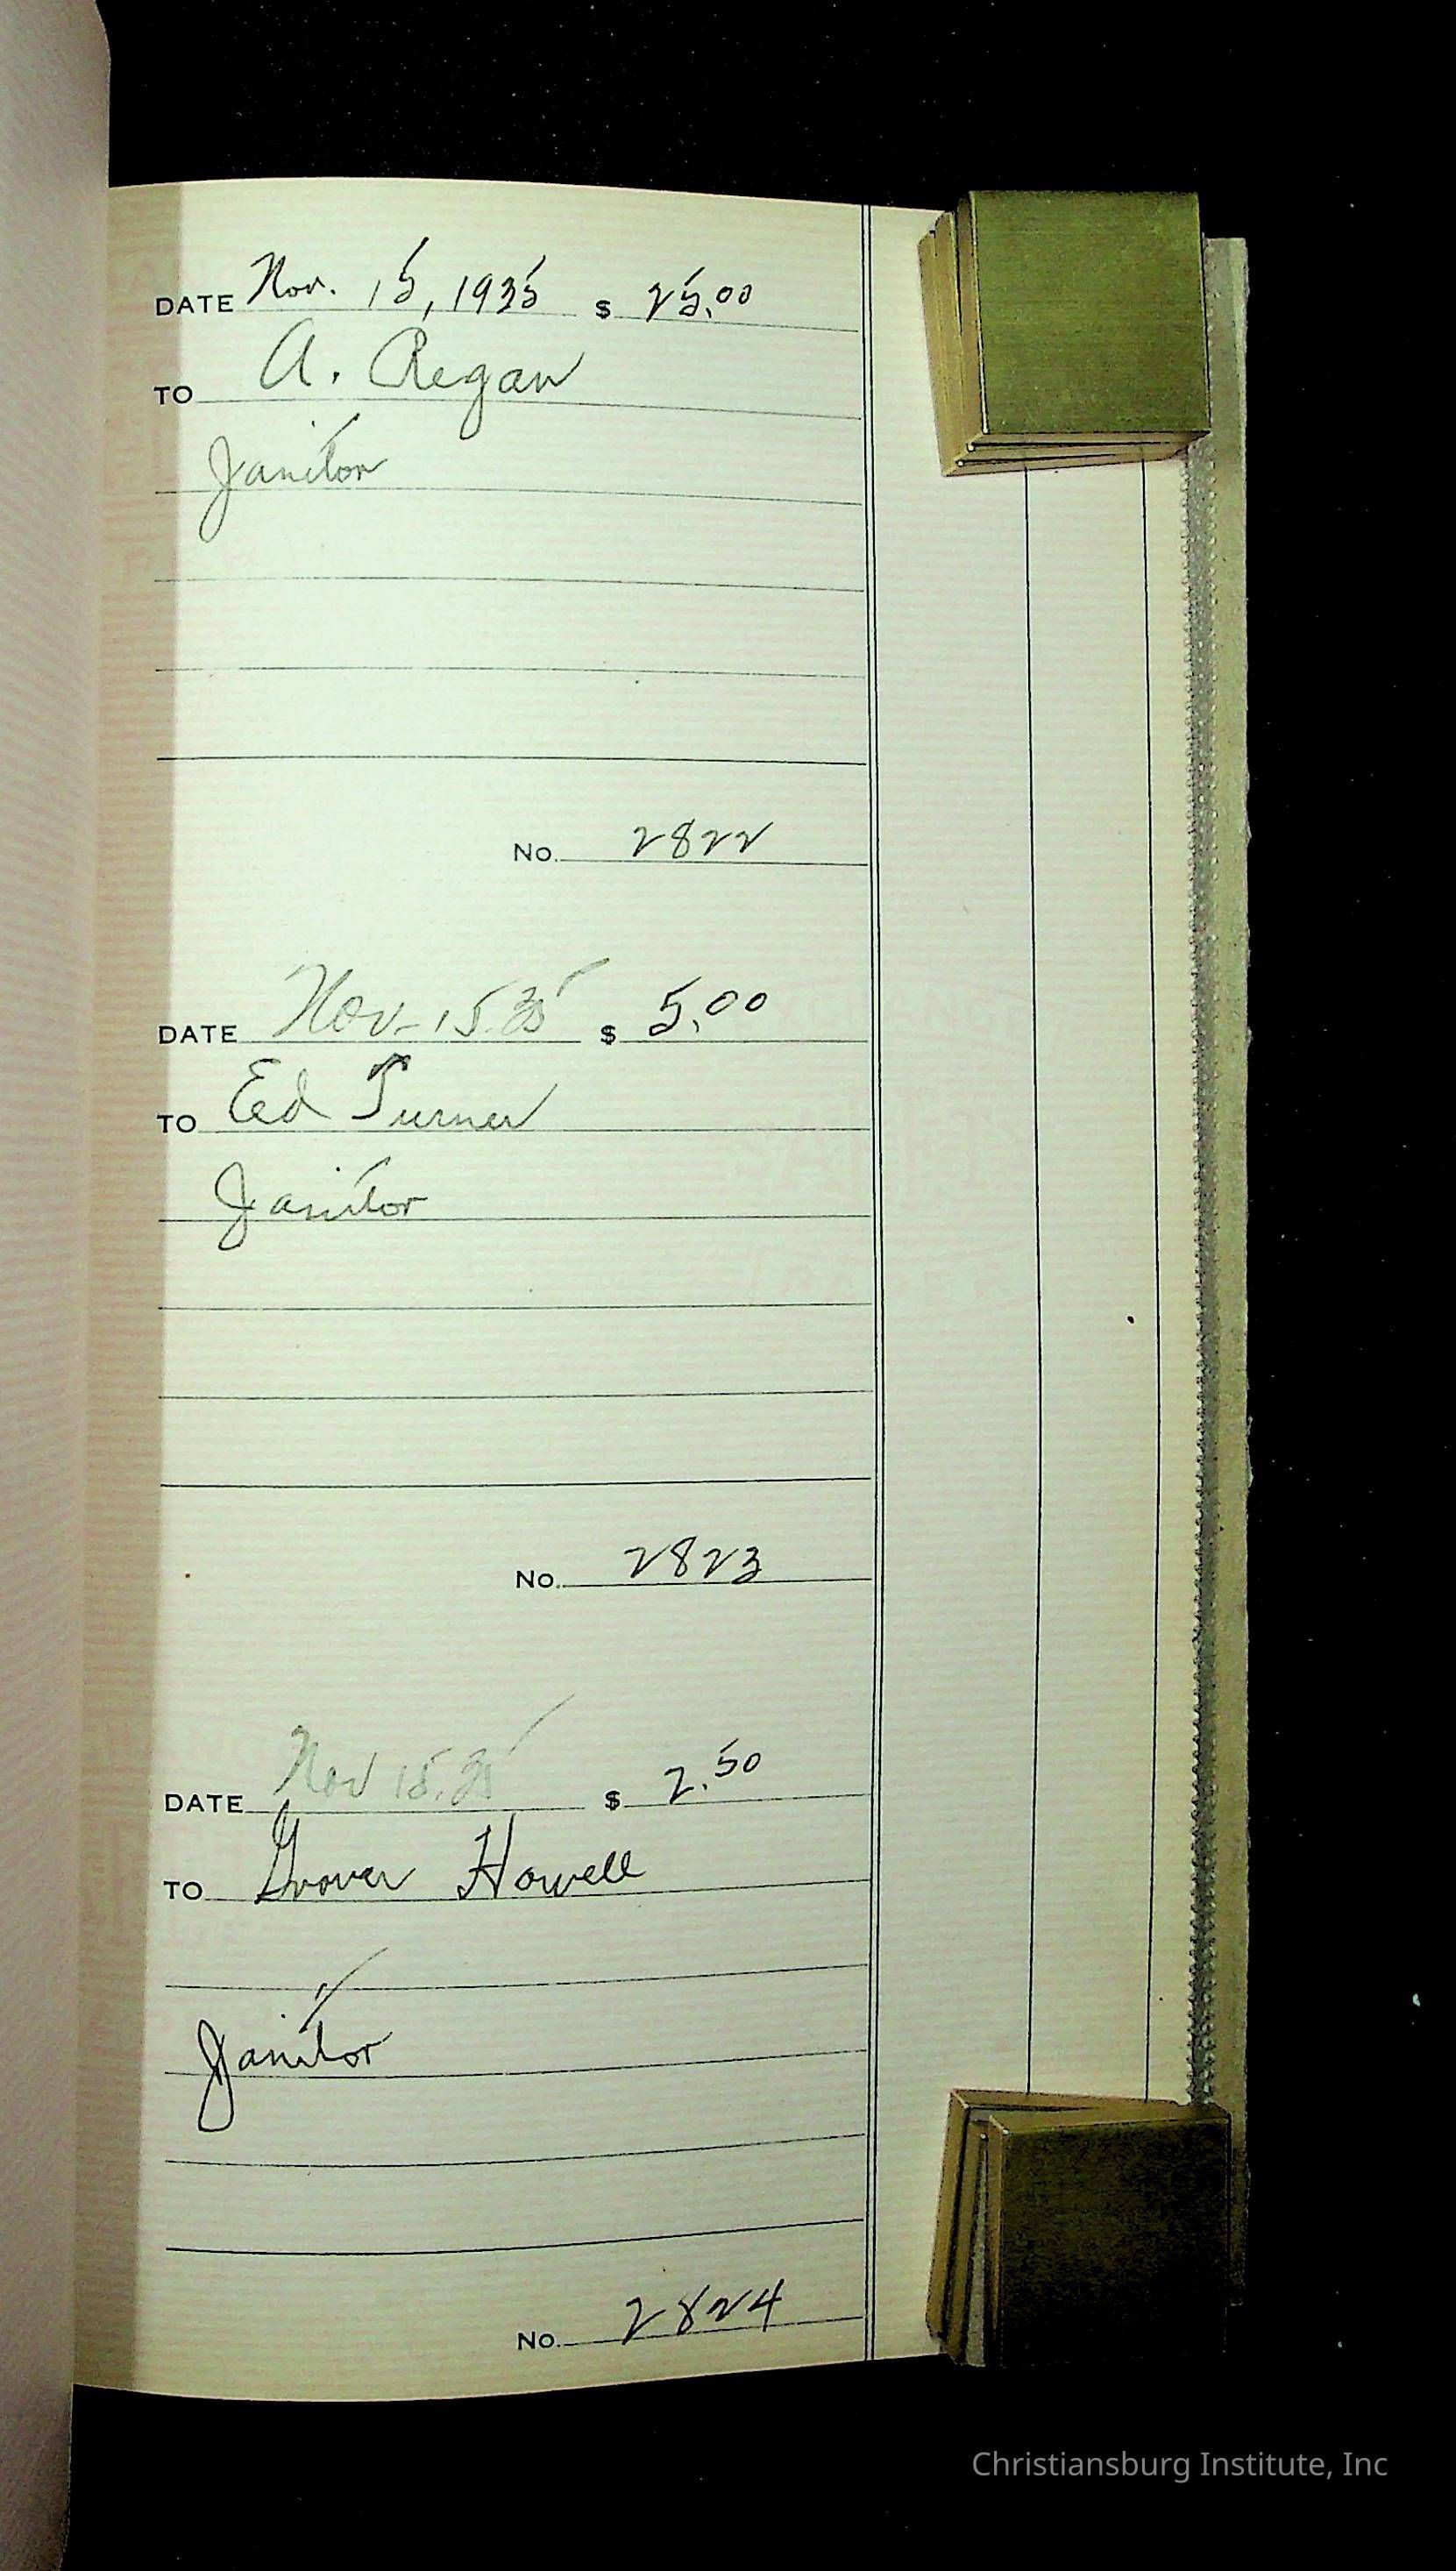 DATE Nov. 15, 1935 $ 25.00
TO A. Regan
Janitor
No. 2822
DATE Nov-15.35 $ 5.00
TO Ed Turner
Janitor
No. 2823
DATE Nov 15.35 $ 2.50
TO Grover Howell
Janitor
No. 2824
Christiansburg Institute, Inc